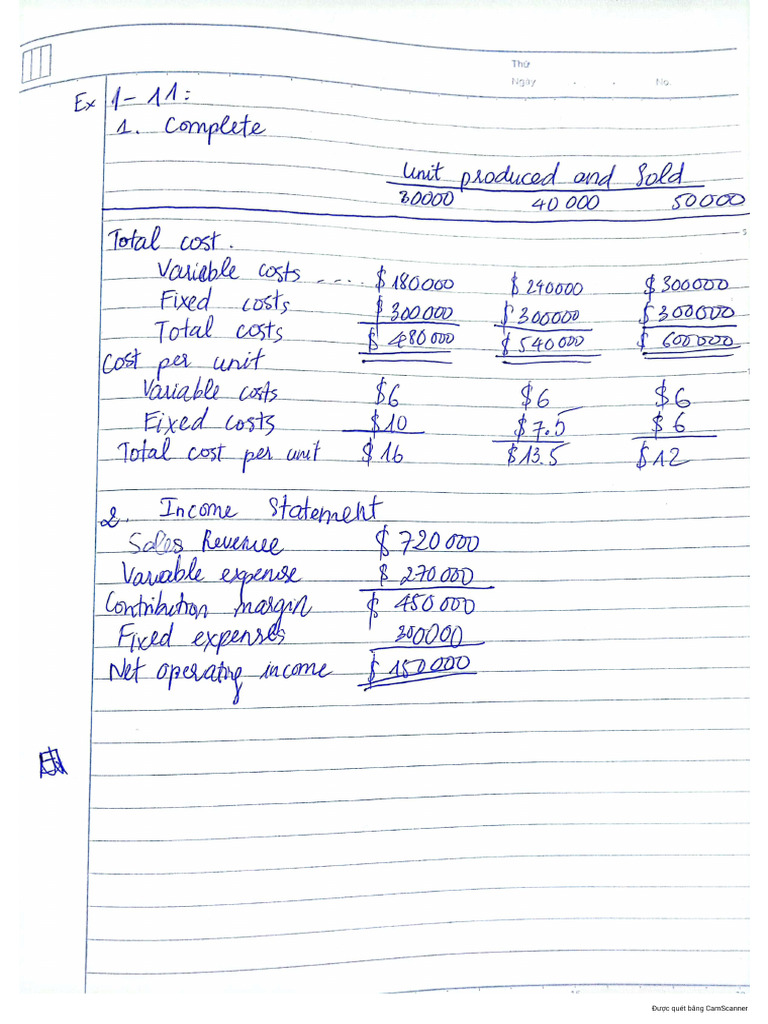 Thứ
Ngày . . No.
Ex 1-11:
1. Complete
Unit produced and Sold
30000 40 000 50000
Total cost.
Variable costs .... $180000 $240000 $300000
Fixed costs $300000 $300000 $300000
Total costs $480000 $540000 $600000
Cost per unit
Variable costs $6 $6 $6
Fixed costs $10 $7.5 $6
Total cost per unit $16 $13.5 $12
2. Income Statement
Sales Revenue $720000
Variable expense $270000
Contribution margin $450000
Fixed expenses 300000
Net operating income $150000
Được quét bằng CamScanner